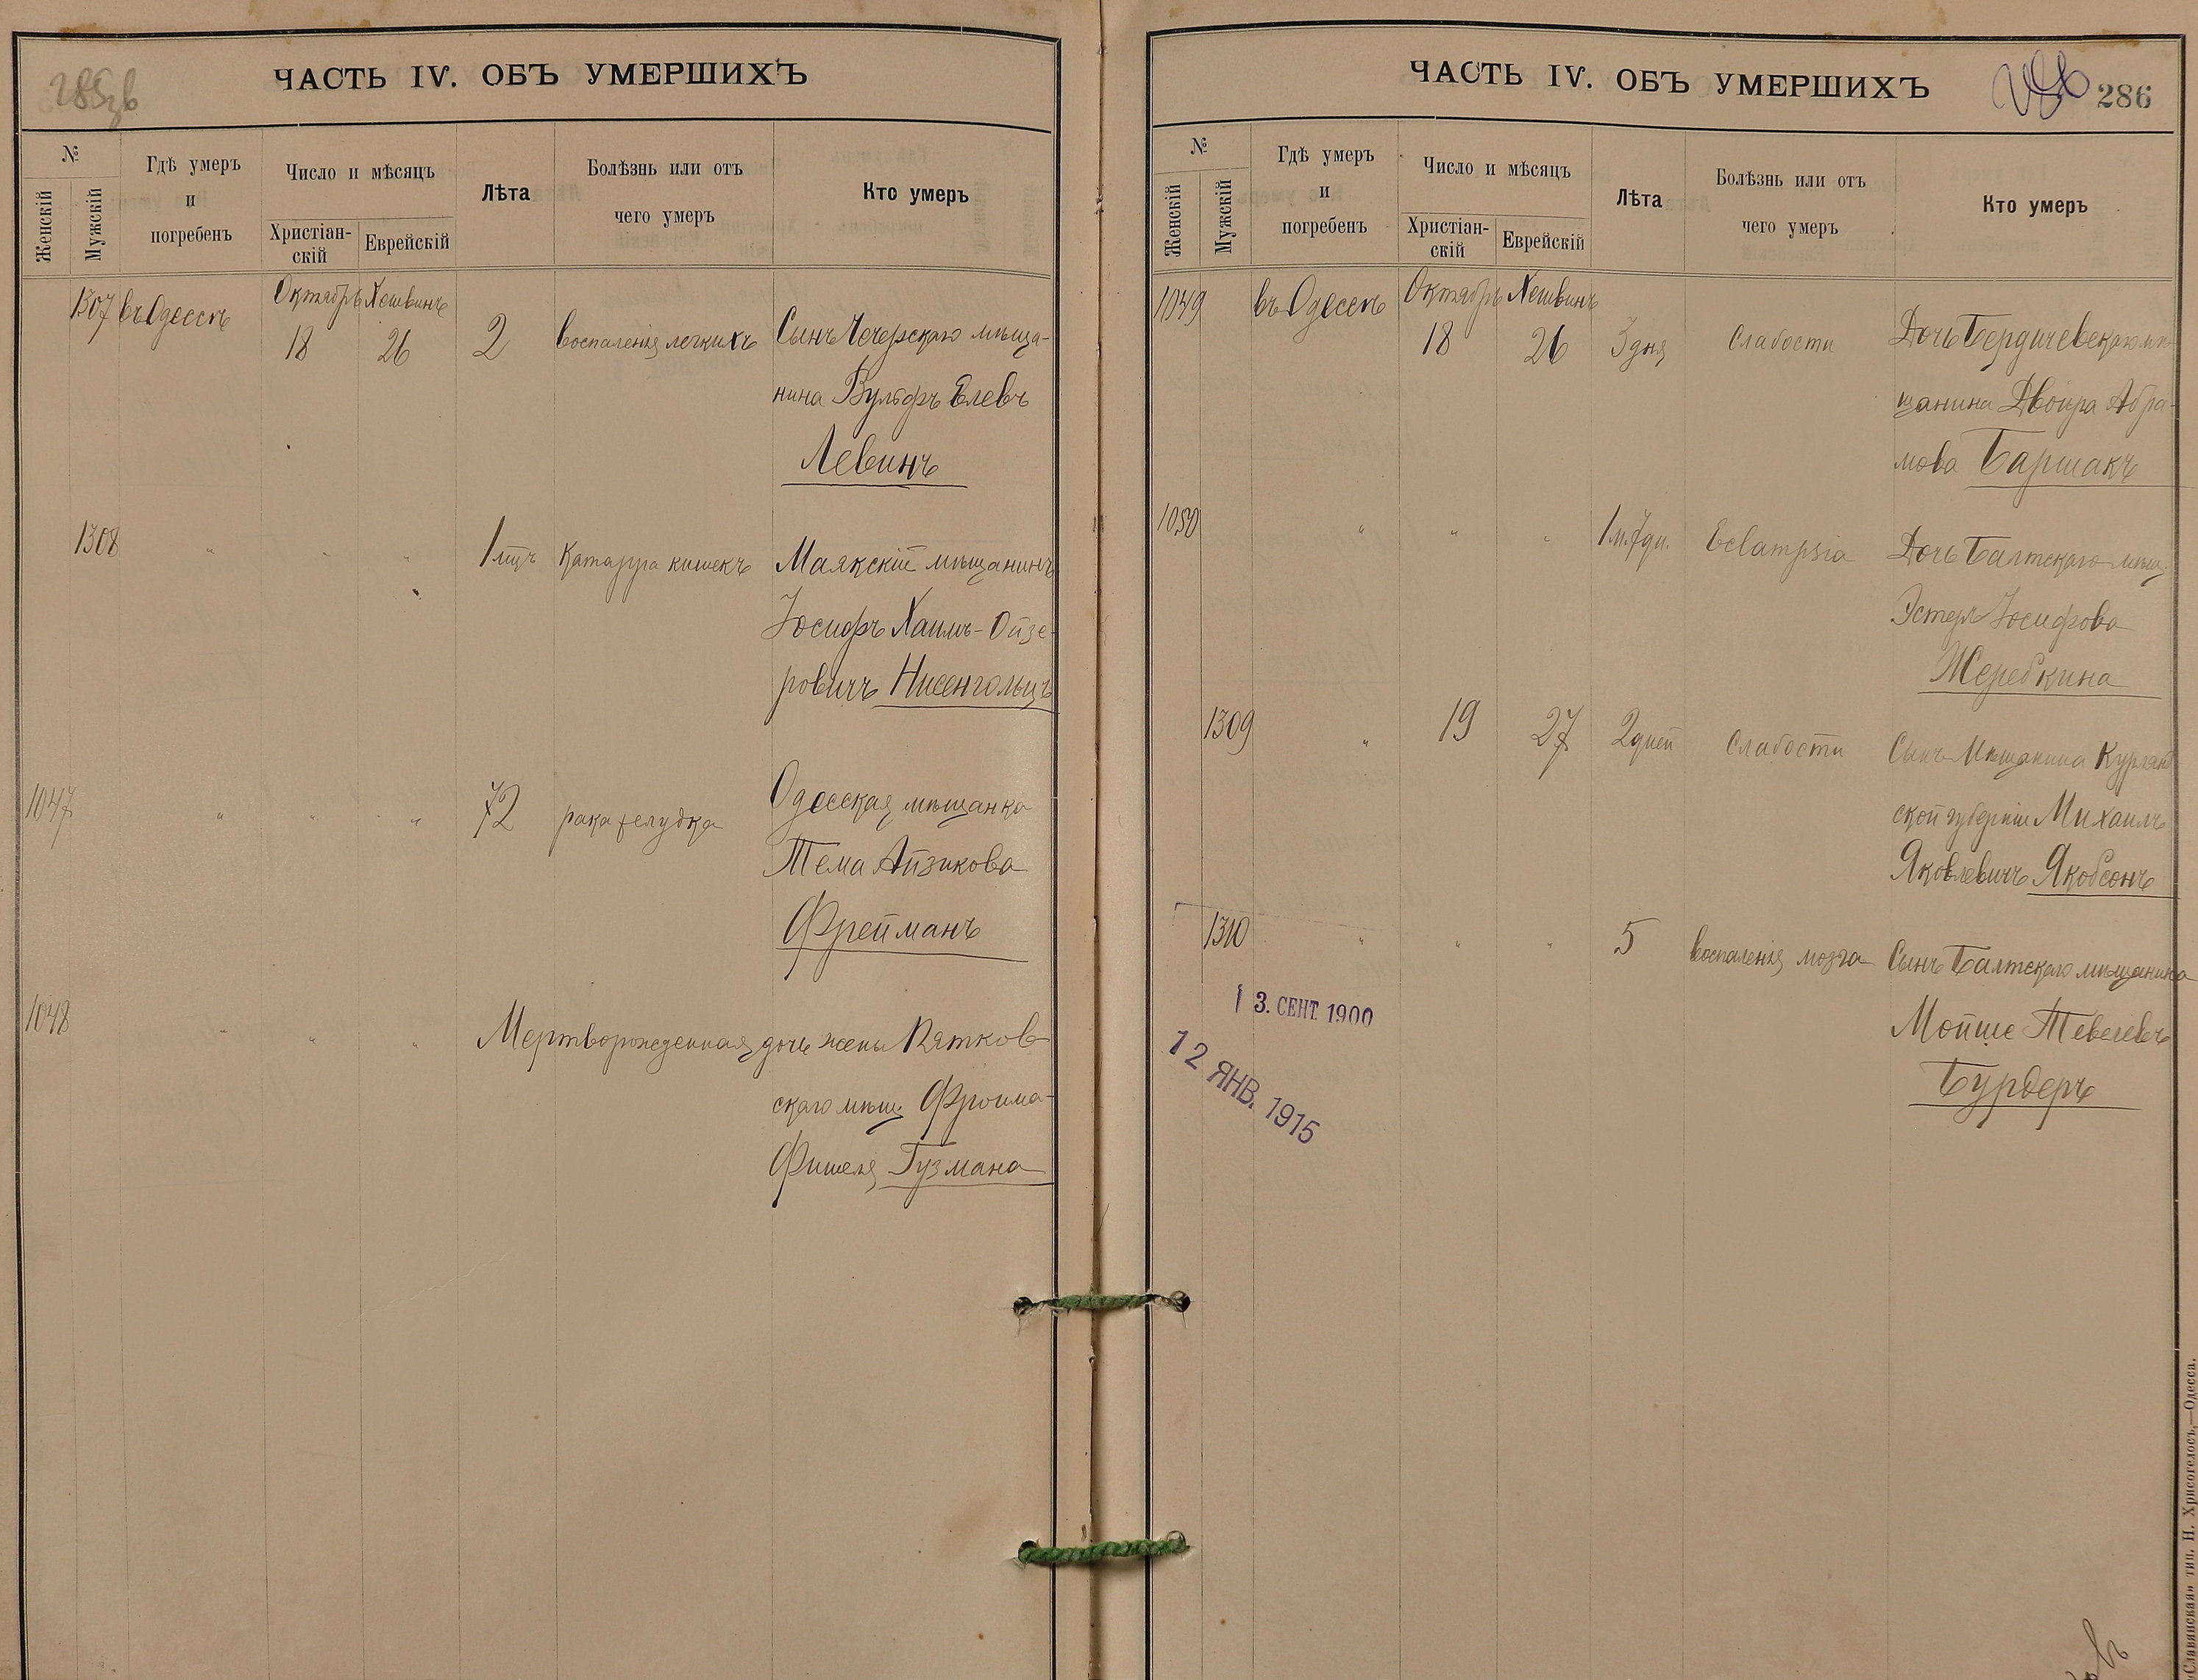 285зв
ЧАСТЬ IV. ОБЪ УМЕРШИХЪ
№
Женскій
Мужскій
Гдѣ умеръ
и
погребенъ
Число и мѣсяцъ
Христіан-
скій
Еврейскій
Лѣта
Болѣзнь или отъ
чего умеръ
Кто умеръ
1307 въ Одессѣ Октябрь Хешвинъ
18 26 2 воспаленія легкихъ Сынъ Чечерскаго мѣща-
нина Вульфъ Елевъ
Левинъ
1308 " " " 1 мцъ Катарра кишекъ Маякскій мѣщанинъ
Іосифъ Хаимъ-Ойзе-
ровичъ Нисенгольцъ
1047 " " " 72 рака желудка Одесская мѣщанка
Тема Айзикова
Фрейманъ
1048 " " " Мертворожденная дочь жены Пятков
скаго мѣщ. Фроима-
Фишеля Гузмана
ЧАСТЬ IV. ОБЪ УМЕРШИХЪ
286
№
Женскій
Мужскій
Гдѣ умеръ
и
погребенъ
Число и мѣсяцъ
Христіан-
скій
Еврейскій
Лѣта
Болѣзнь или отъ
чего умеръ
Кто умеръ
1049 въ Одессѣ Октябрь Хешвинъ
18 26 3 дня Слабости Дочь Бердичевскаго мѣ-
щанина Двойра Абра-
мова Баршакъ
1050 " " " 1 м. 7 дн. Eclampsia Дочь Балтскаго мѣщ.
Эстеръ Іосифова
Жеребкина
1309 " 19 27 2 дней Слабости Сынъ Мѣщанина Курлянд
ской губерніи Михаилъ
Яковлевичъ Якобсонъ
1310 " " " 5 воспаленія мозга Сынъ Балтскаго мѣщанина
Мойше Тевелевъ
Бурдеръ
1 3. СЕНТ. 1900
12 ЯНВ. 1915
«Славянская» тип. Н. Хрисогелосъ,—Одесса.